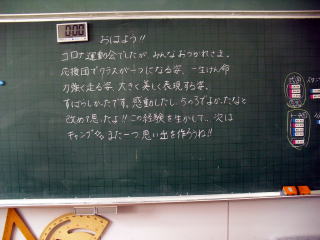 0:00
おはよう!!
コロナ運動会でしたが、みんなおつかれさま。
応援団でクラスが一つになる姿、一生けん命
力強く走る姿、大きく美しく表現する姿、
すばらしかったです。感動したし、うちのろでよかったなと
改めて思ったよ!! この経験を生かして、次は
キャンプだね。また一つ、思い出を作ろうね!!